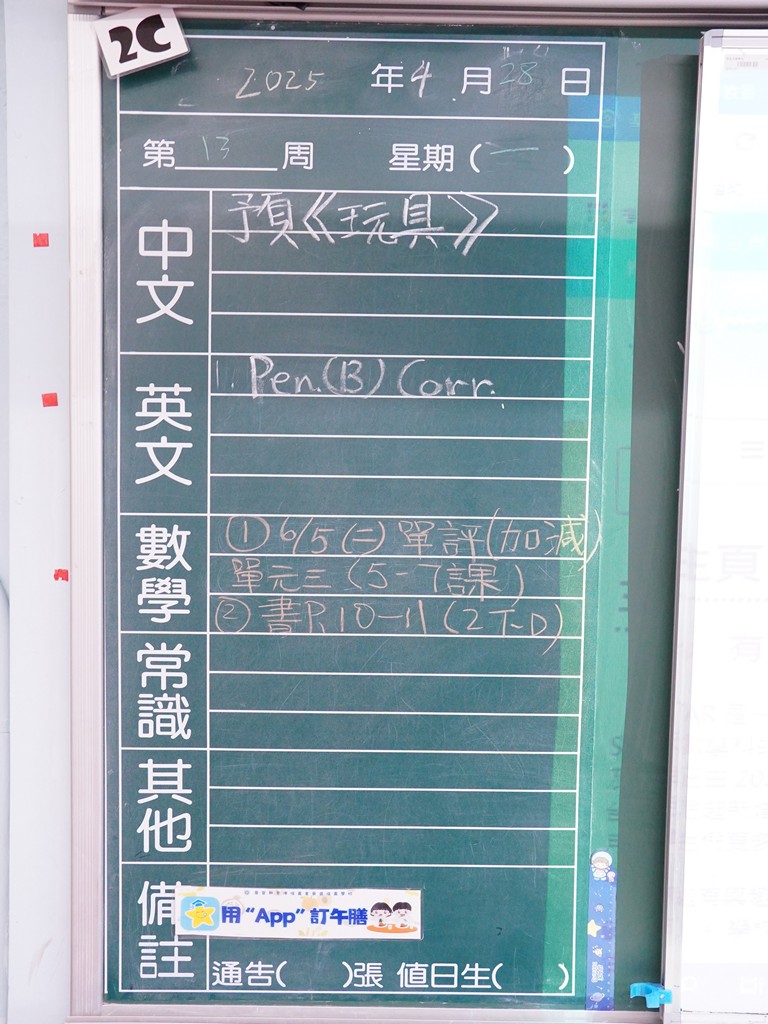 2C
2025 年 4 月 28 日
第 13 周 星期 (一)
中文
預《玩具》
英文
1. Pen.(B) Corr.
數學
① 6/5(二) 單評(加減)
單元三 (5-7課)
② 書P.10-11 (2下D)
常識
其他
備註
用 “App” 訂午膳
通告( )張 值日生( )